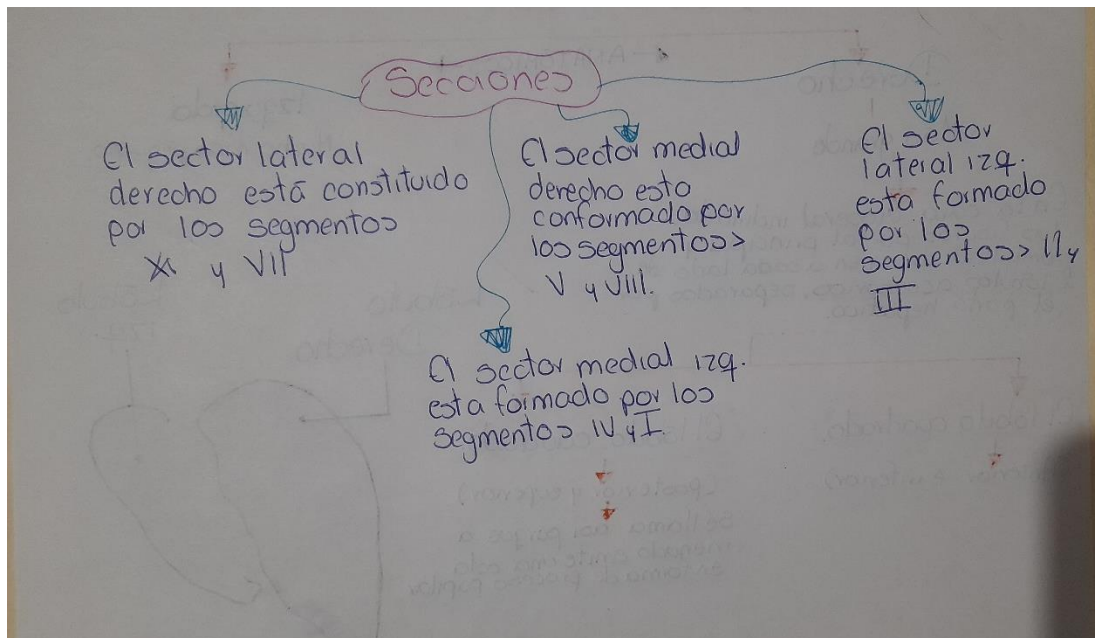 Secciones
El sector lateral
derecho está constituido
por los segmentos
y VII
El sector medial
derecho esta
conformado por
los segmentos
V y VIII.
El sector
lateral izq.
esta formado
por los
segmentos II y
III
El sector medial izq.
esta formado por los
segmentos IV y I.